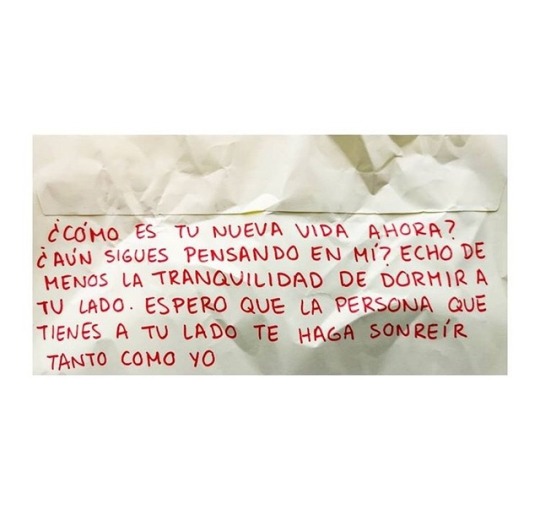 ¿CÓMO ES TU NUEVA VIDA AHORA?
¿AÚN SIGUES PENSANDO EN MÍ? ECHO DE
MENOS LA TRANQUILIDAD DE DORMIR A
TU LADO. ESPERO QUE LA PERSONA QUE
TIENES A TU LADO TE HAGA SONREÍR
TANTO COMO YO